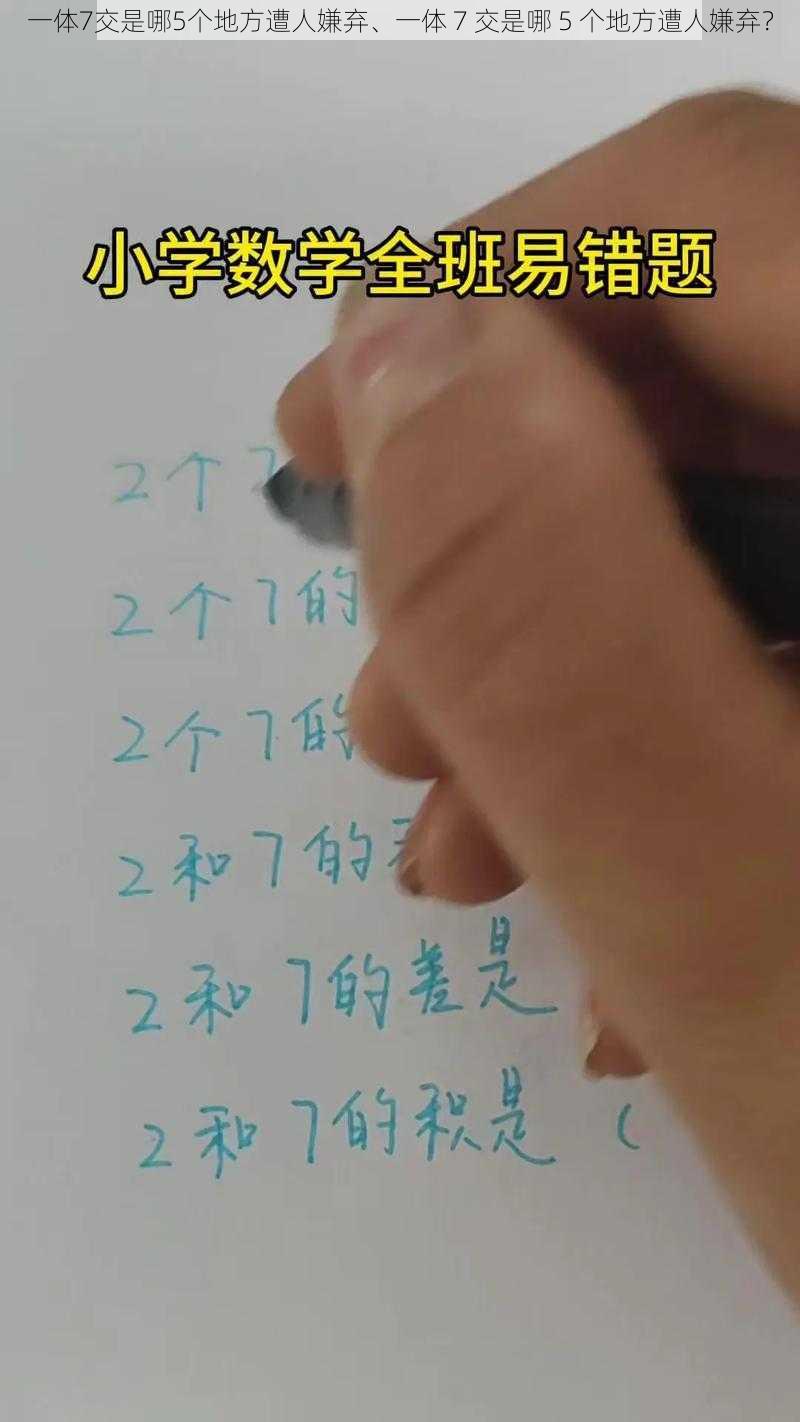 一体7交是哪5个地方遭人嫌弃、一体 7 交是哪 5 个地方遭人嫌弃？
小学数学全班易错题
2个7
2个7的
2个7的
2和7的
2和7的差是
2和7的积是（